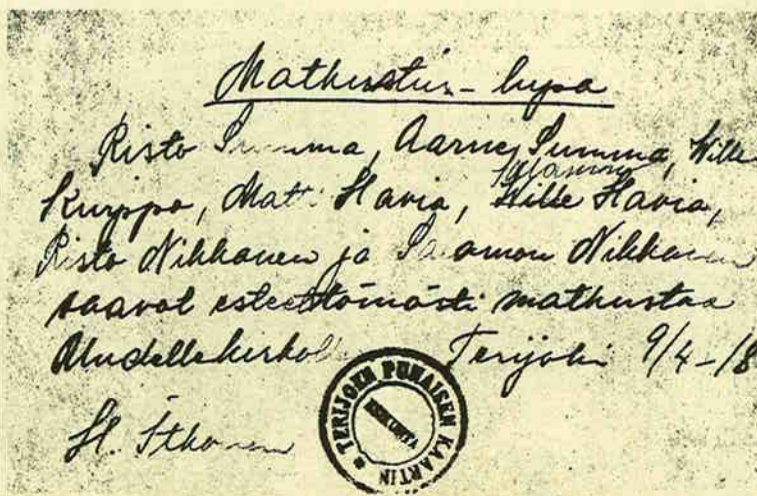 Matkustus-lupa
Risto Summa, Aarne Summa, Wille
Kurppa, Matti Havia, Salamon Wille Havia,
Risto Nikkanen ja Salamon Nikkanen
saavat esteettömästi matkustaa
Uudellekirkolle Terijoki 9/4-18
H. Itkonen
TERIJOEN PUNAISEN KAARTIN
ESIKUNTA